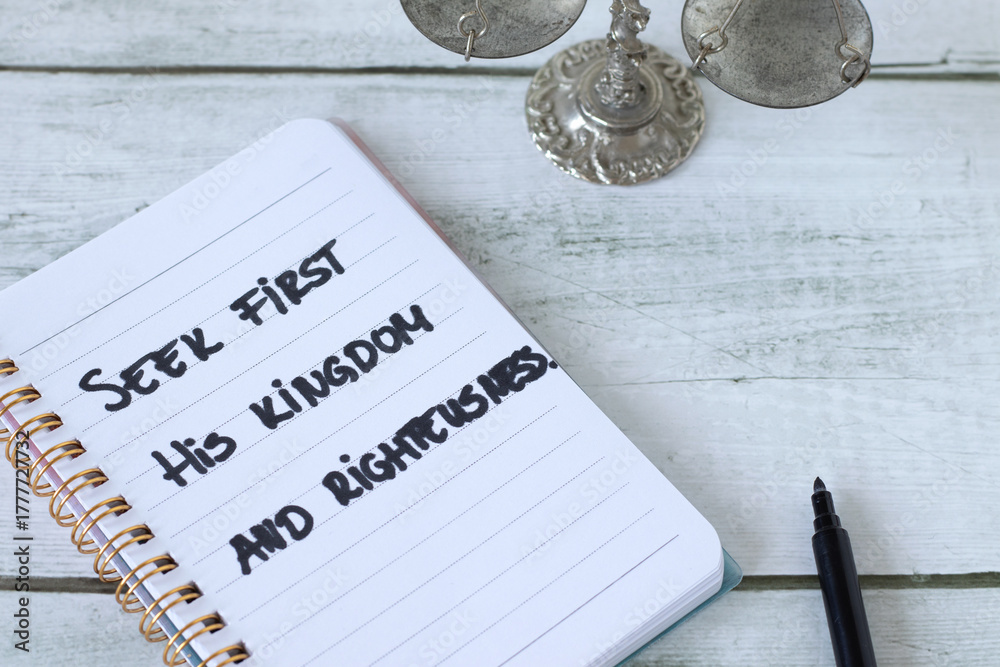 SEEK FIRST
HiS KINGDOM
AND RiGHTEUSNESS.
Adobe Stock | #1777727732